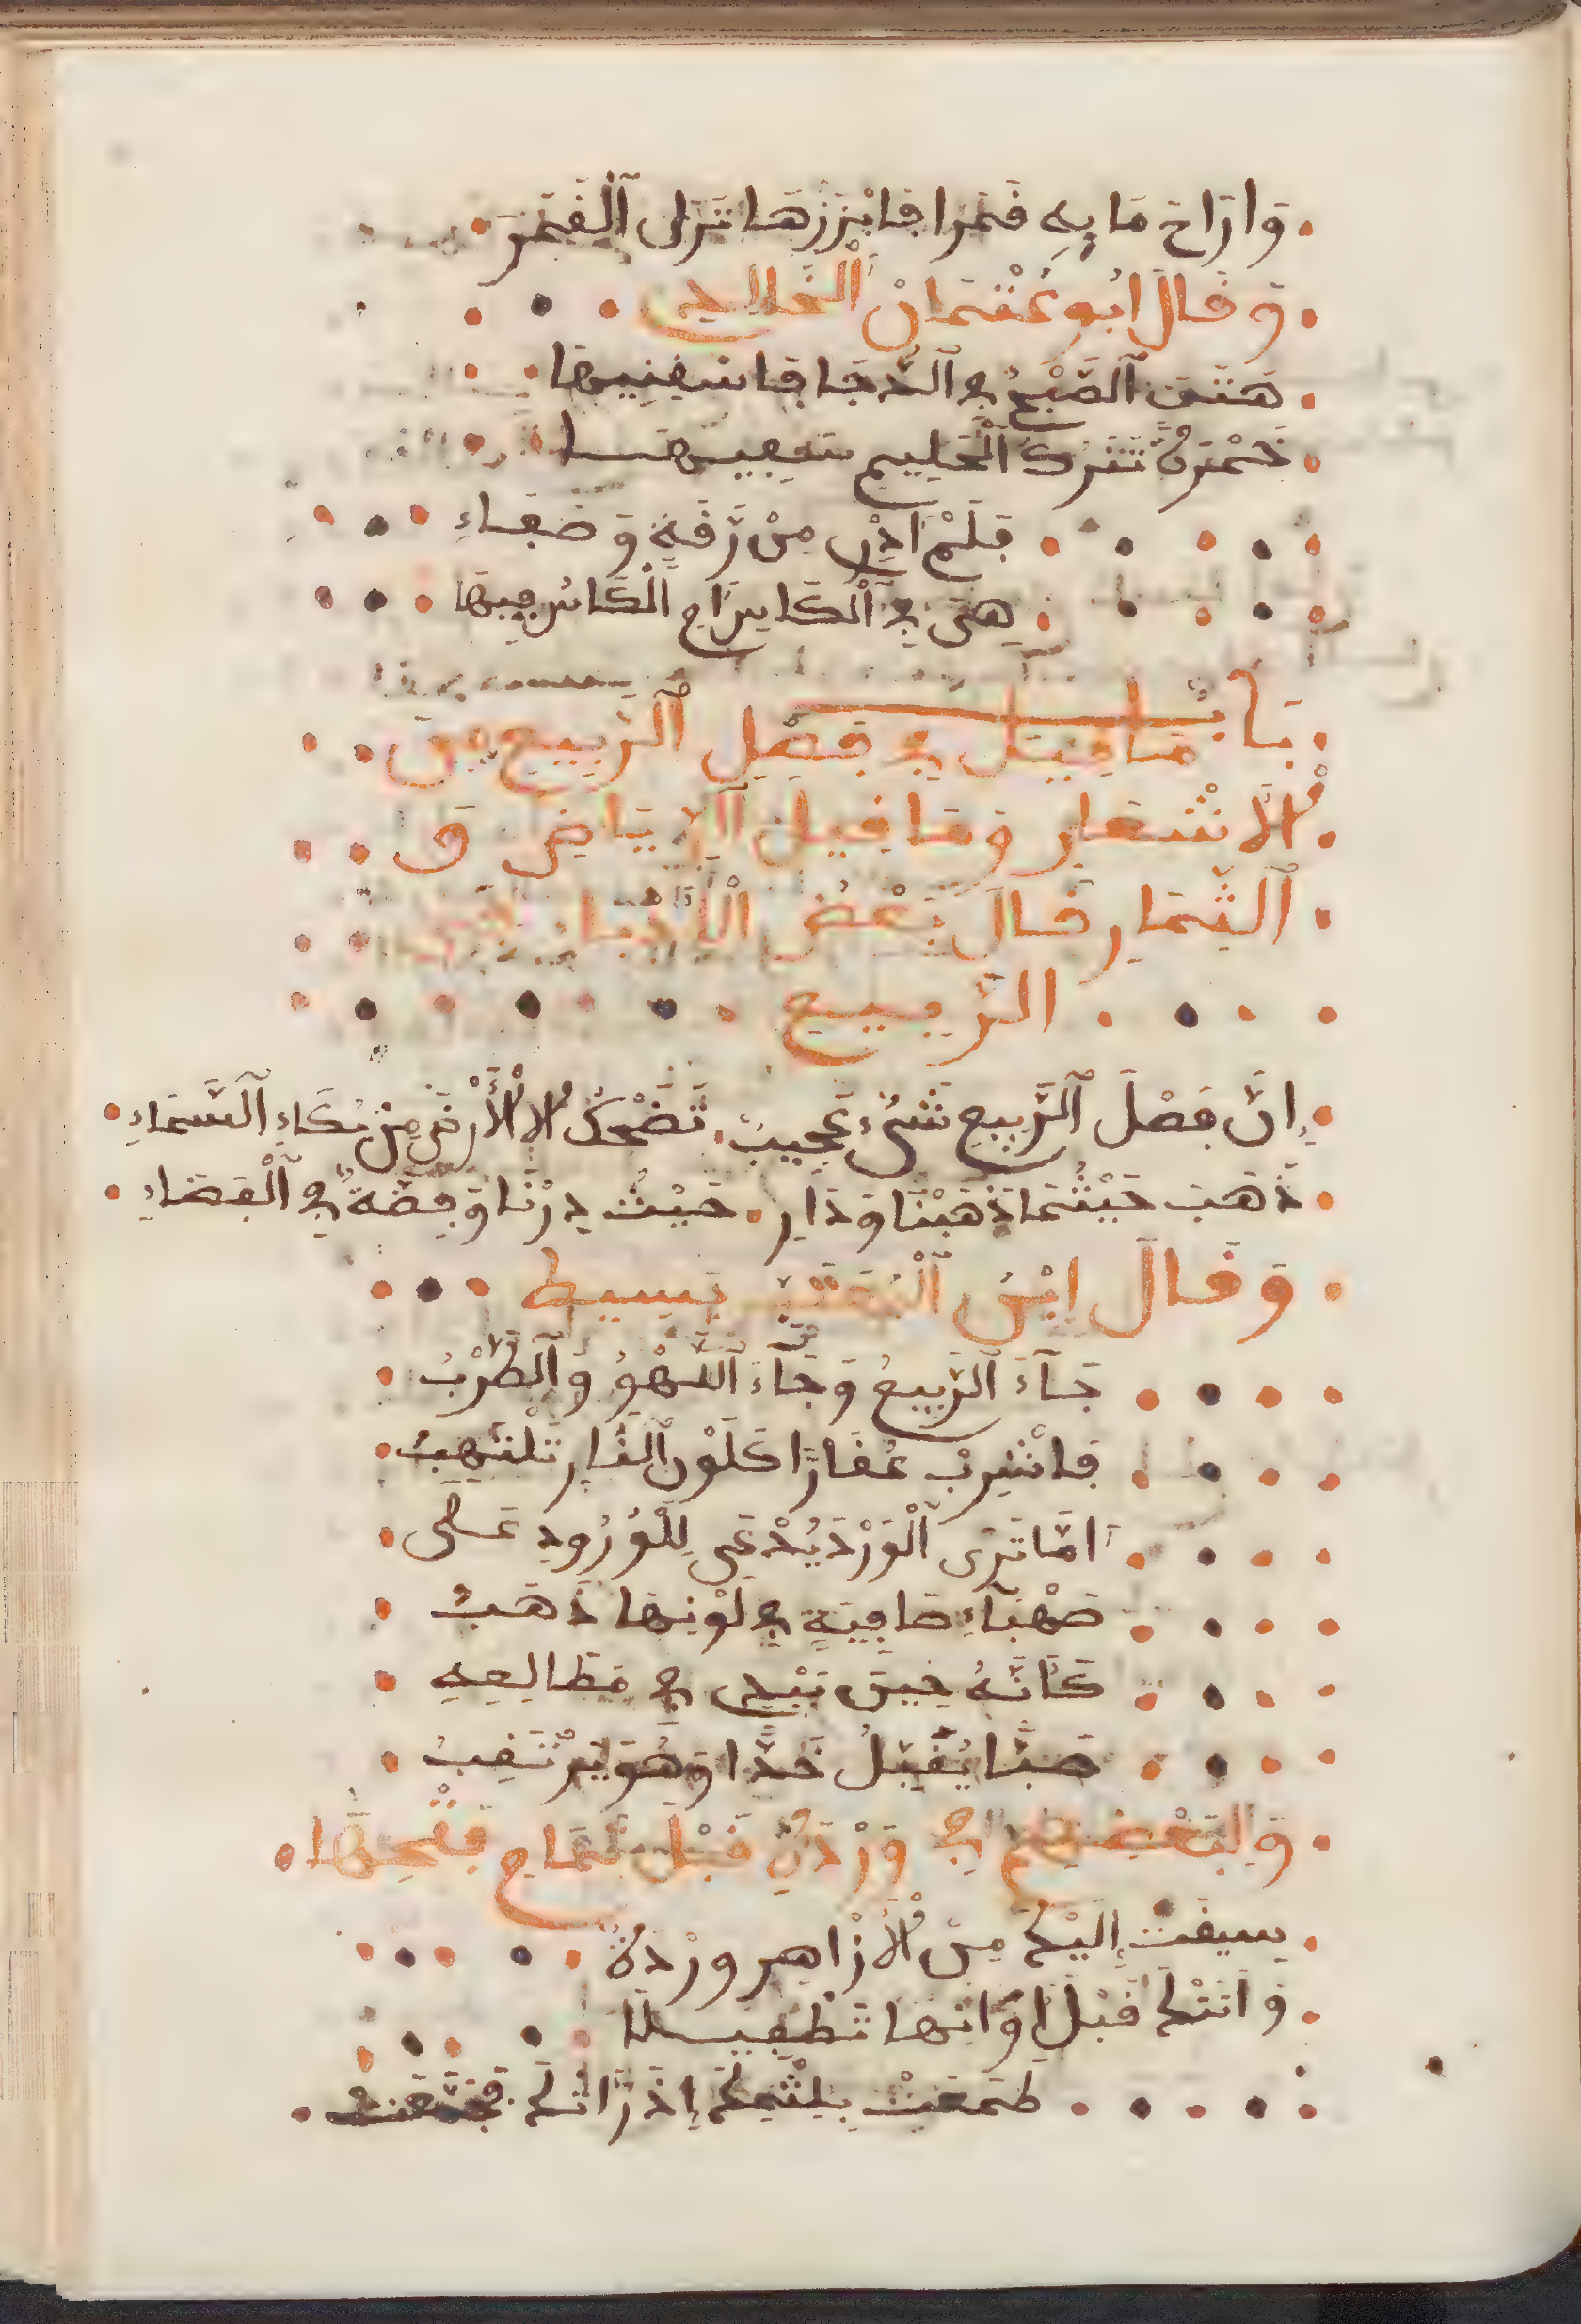 وَارَاحَ مَا بِهِ قَمَرا فَابْرَزَهَا تَرَى ٱلْقَمَرَ
وَقَالَ ابُو عُثْمَانْ ٱلْخَالِدِي
هَتَفَ ٱلصُّبْحُ فِي ٱلدُّجَا فَاسْقِنِيهَا
خَمْرَةً تَتْرُكُ ٱلْحَلِيمَ سَفِيهَا
فَلَمْ ادْرِ مِنْ رِّقَةٍ وَصَفَاءِ
هِيَ فِي ٱلْكَاسِ اَمِ ٱلْكَاسُ فِيهَا
بَابُ مَا قِيلَ فِي فَصْلِ ٱلرَّبِيعِ مِنَ
ٱلْأَشْعَارِ وَمَا قِيلَ ٱلرِّيَاضِ وَ
ٱلثِّمَارِ قَالَ بَعْضُ ٱلْأُدَبَاءِ
ٱلرَّبِيعِ
إِنَّ فَصْلَ ٱلرَّبِيعِ شَيْءٌ عَجِيبٌ تَضْحَكُ ٱلْأَرْضُ مِنْ بُكَاءِ ٱلسَّمَاءِ
ذَهَبٌ حَيْثُمَا ذَهَبْنَا وَدَارٍ حَيْثُ دِرْنَا وَفِضَّةٌ فِي ٱلْفَضَاءِ
وَقَالَ ابْنُ ٱلْمُعْتَزِّ بَسِيط
جَآءَ ٱلرَّبِيعُ وَجَآءَ ٱللَّهْوُ وَٱلطَّرَبُ
فَاشْرِبْ عُقَارًا كَلَوْنِ ٱلنَّارِ تَلْتَهِبُ
اَمَا تَرَى ٱلْوَرْدَ يُدْعَى لِلْوُرُودِ عَلَى
صَهْبَآءَ صَافِيَةٍ فِي لَوْنِهَا ذَهَبُ
كَأَنَّهُ حِينَ يَبْدِي فِي مَطَالِعِهِ
صَبًّا يُقَبِّلُ خَدًّا وَهُوَ يَرْتَقِبُ
وَلِبَعْضِهِمْ فِي وَرْدَةٍ قَبْلَ تَمَامِ فَتْحِهَا
سِيقَتْ إِلَيْكَ مِنَ ٱلْأَزَاهِرِ وَرْدَةٌ
وَاتَتْكَ قَبْلَ اوَانِهَا تَطْفِيلَا
طَمِعَتْ بِلَثْمِكَ إِذْ رَاتْكَ فَجَمَّعَتْ